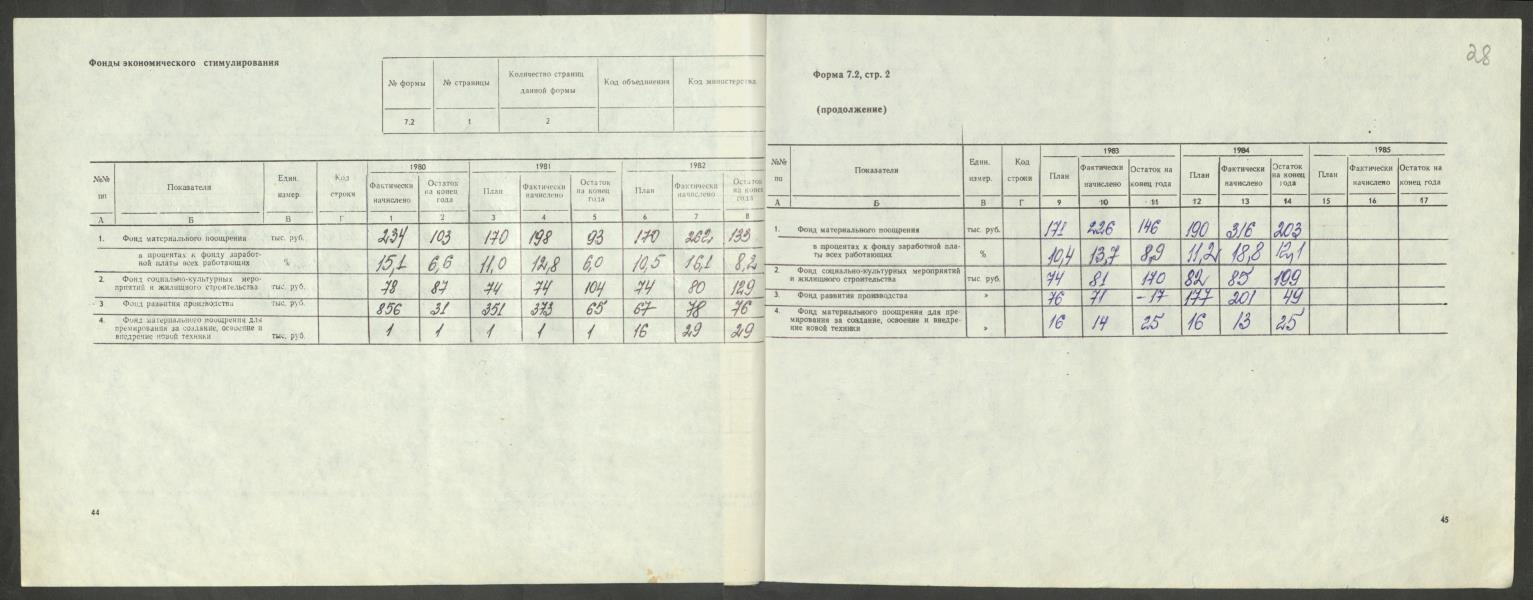 28
Фонды экономического стимулирования
№ формы № страницы Количество страниц данной формы Код объединения Код министерства
7.2 1 2
Форма 7.2, стр. 2
(продолжение)
№№ пп Показатели Един. измер. Код строки 1980 1981 1982
Фактически начислено Остаток на конец года План Фактически начислено Остаток на конец года План Фактически начислено Остаток на конец года
А Б В Г 1 2 3 4 5 6 7 8
1. Фонд материального поощрения тыс. руб. 234 103 170 198 93 170 262 133
в процентах к фонду заработ-
ной платы всех работающих % 15,1 6,6 11,0 12,8 6,0 10,5 16,1 8,2
2. Фонд социально-культурных меро-
приятий и жилищного строительства тыс. руб. 78 87 74 74 104 74 80 129
3 Фонд развития производства тыс. руб. 856 31 351 373 65 67 78 76
4. Фонд материального поощрения для
премирования за создание, освоение и
внедрение новой техники тыс. руб. 1 1 1 1 1 16 29 29
44
№№ пп Показатели Един. измер. Код строки 1983 1984 1985
План Фактически начислено Остаток на конец года План Фактически начислено Остаток на конец года План Фактически начислено Остаток на конец года
А Б В Г 9 10 11 12 13 14 15 16 17
1. Фонд материального поощрения тыс. руб. 171 226 146 190 316 203
в процентах к фонду заработной пла-
ты всех работающих % 10,4 13,7 8,9 11,2 18,8 12,1
2. Фонд социально-культурных мероприятий
и жилищного строительства тыс. руб. 74 81 170 82 85 199
3. Фонд развития производства » 76 71 -17 177 201 49
4. Фонд материального поощрения для пре-
мирования за создание, освоение и внедре-
ние новой техники » 16 14 25 16 13 25
45